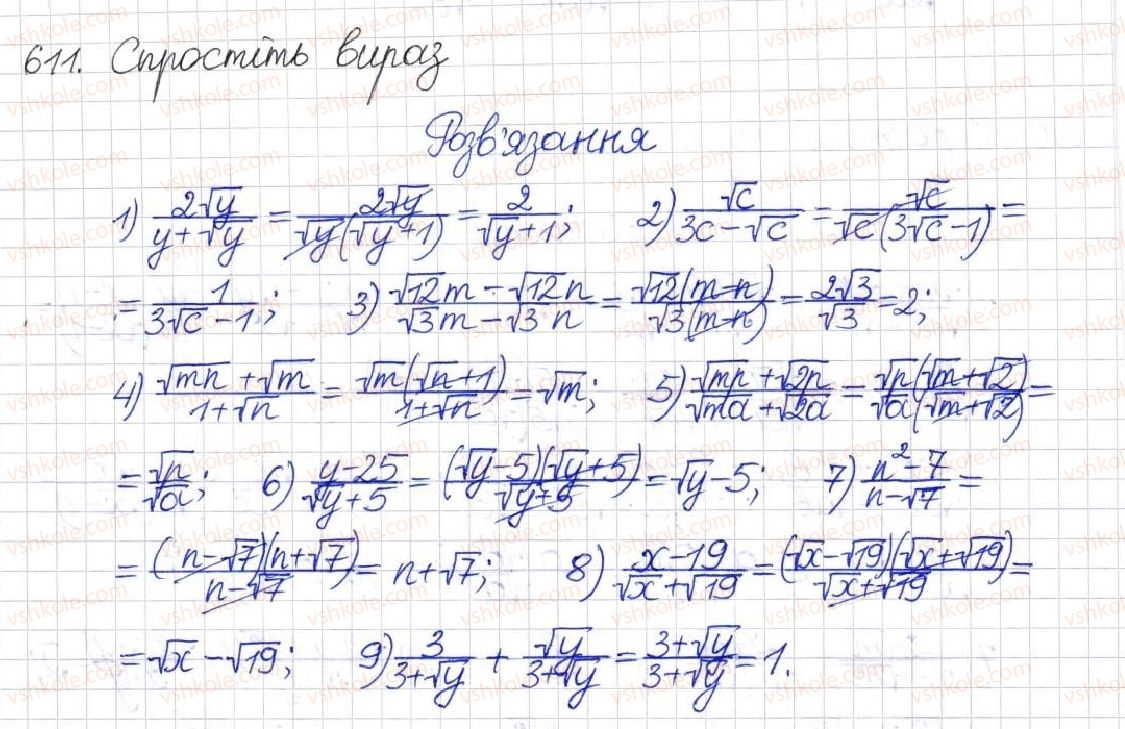 611. Спростіть вираз
Розв'язання
1) 2√y/(y+√y) = 2√y/(√y(√y+1)) = 2/(√y+1); 2) √c/(3c-√c) = √c/(√c(3√c-1)) =
= 1/(3√c-1); 3) (√12m-√12n)/(√3m-√3n) = √12(m-n)/(√3(m-n)) = 2√3/√3 = 2;
4) (√mn+√m)/(1+√n) = √m(√n+1)/(1+√n) = √m; 5) (√mn+√2n)/(√ma+√2a) = √n(√m+√2)/(√a(√m+√2)) =
= √n/√a; 6) (y-25)/(√y+5) = (√y-5)(√y+5)/(√y+5) = √y-5; 7) (n²-7)/(n-√7) =
= (n-√7)(n+√7)/(n-√7) = n+√7; 8) (x-19)/(√x+√19) = (√x-√19)(√x+√19)/(√x+√19) =
= √x-√19; 9) 3/(3+√y) + √y/(3+√y) = (3+√y)/(3+√y) = 1.
vshkole.com